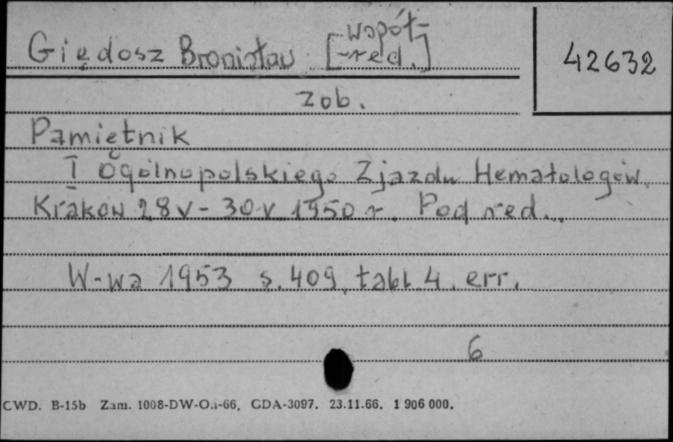 Giędosz Bronisław [współ-
-red.]
42632
zob.
Pamiętnik
I Ogólnopolskiego Zjazdu Hematologów.
Kraków 28 V - 30 V 1950 r. Pod red...
W-wa 1953 s. 409, tabl. 4. err.
6
CWD. B-15b Zam. 1008-DW-On-66. GDA-3097. 23.11.66. 1 906 000.